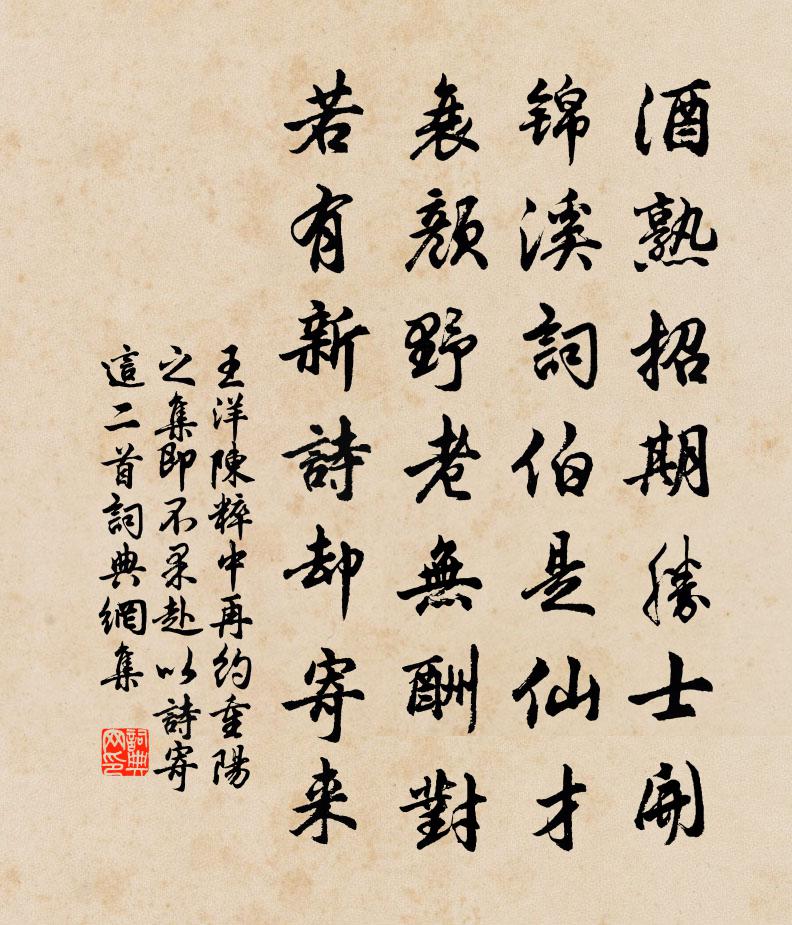 酒熟招期勝士開
锦溪詞伯是仙才
衰顔野老無酬對
若有新詩却寄来
王洋陳粹中再約重陽
之集即不果赴以詩寄
這二首詞典網集
詞典网印